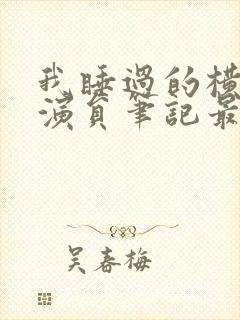 我睡過的橫
演員筆記最
吴春梅